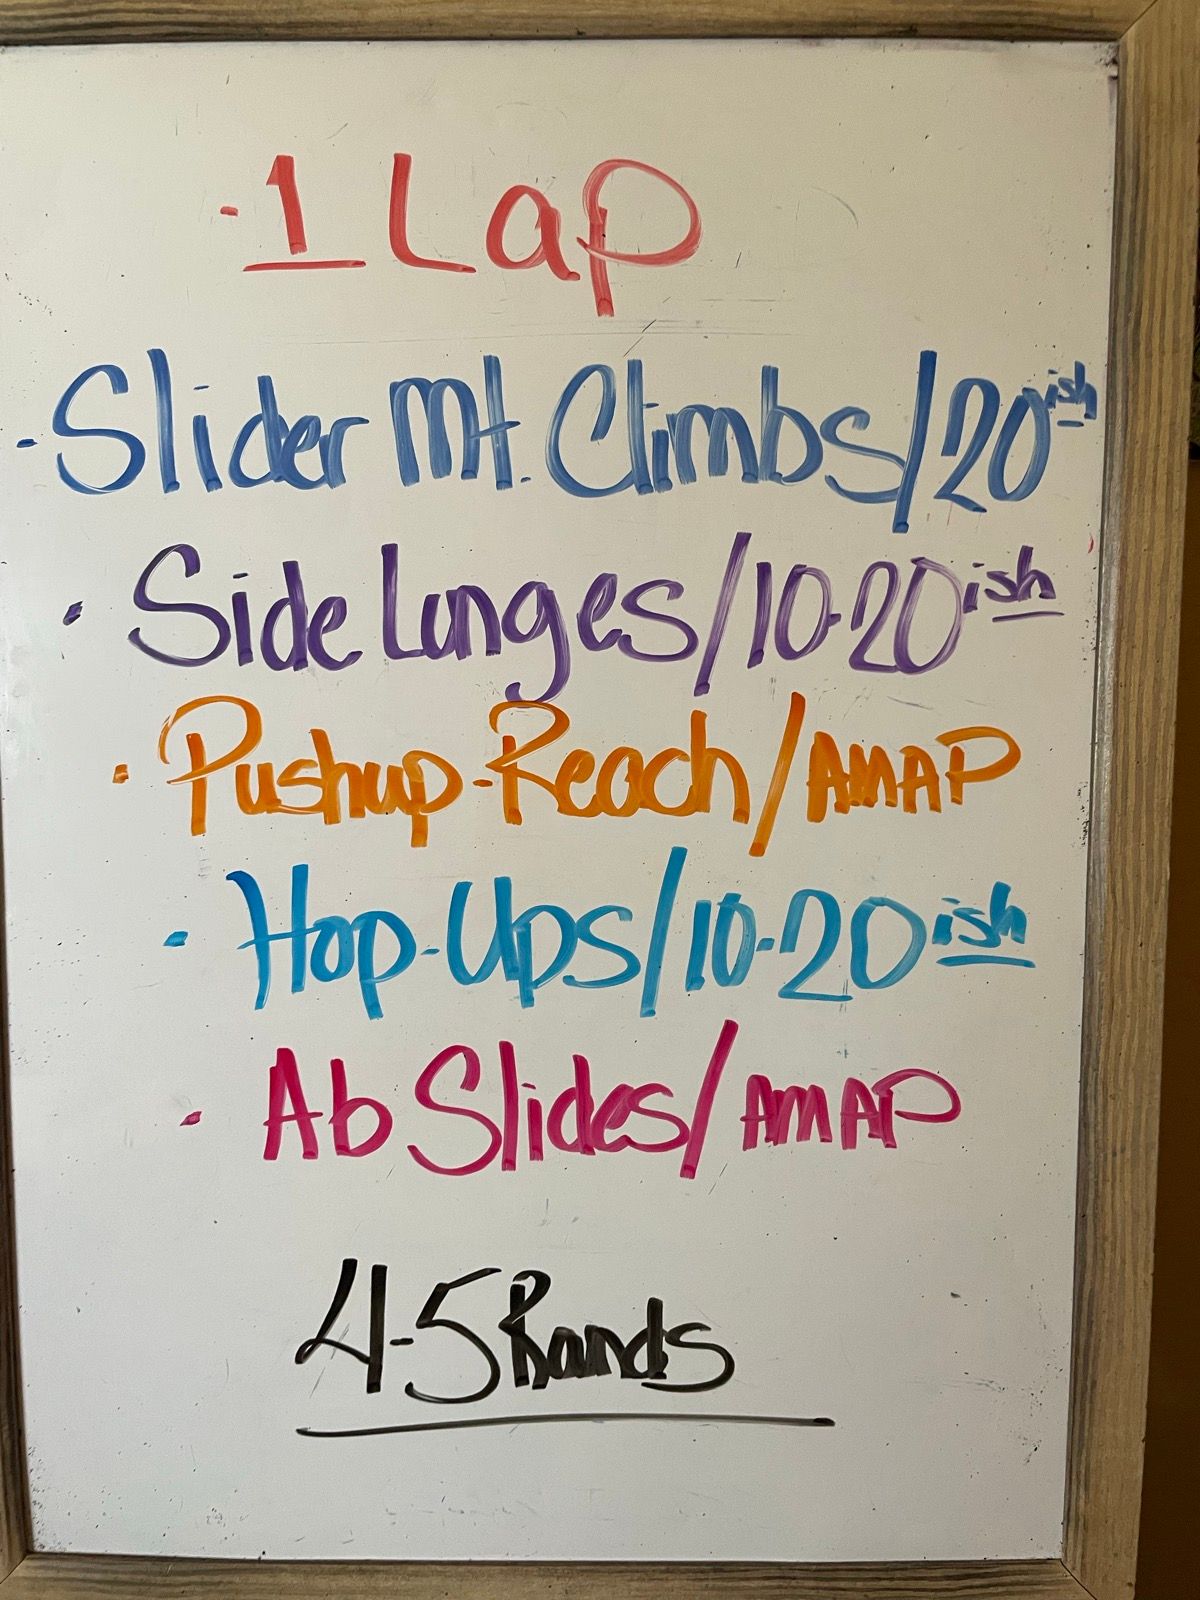 - 1 Lap
- Slider Mt. Climbs/20ish
• Side Lunges/10-20ish
• Pushup-Reach/AMAP
• Hop-Ups/10-20ish
• Ab Slides/AMAP
4-5 Rounds